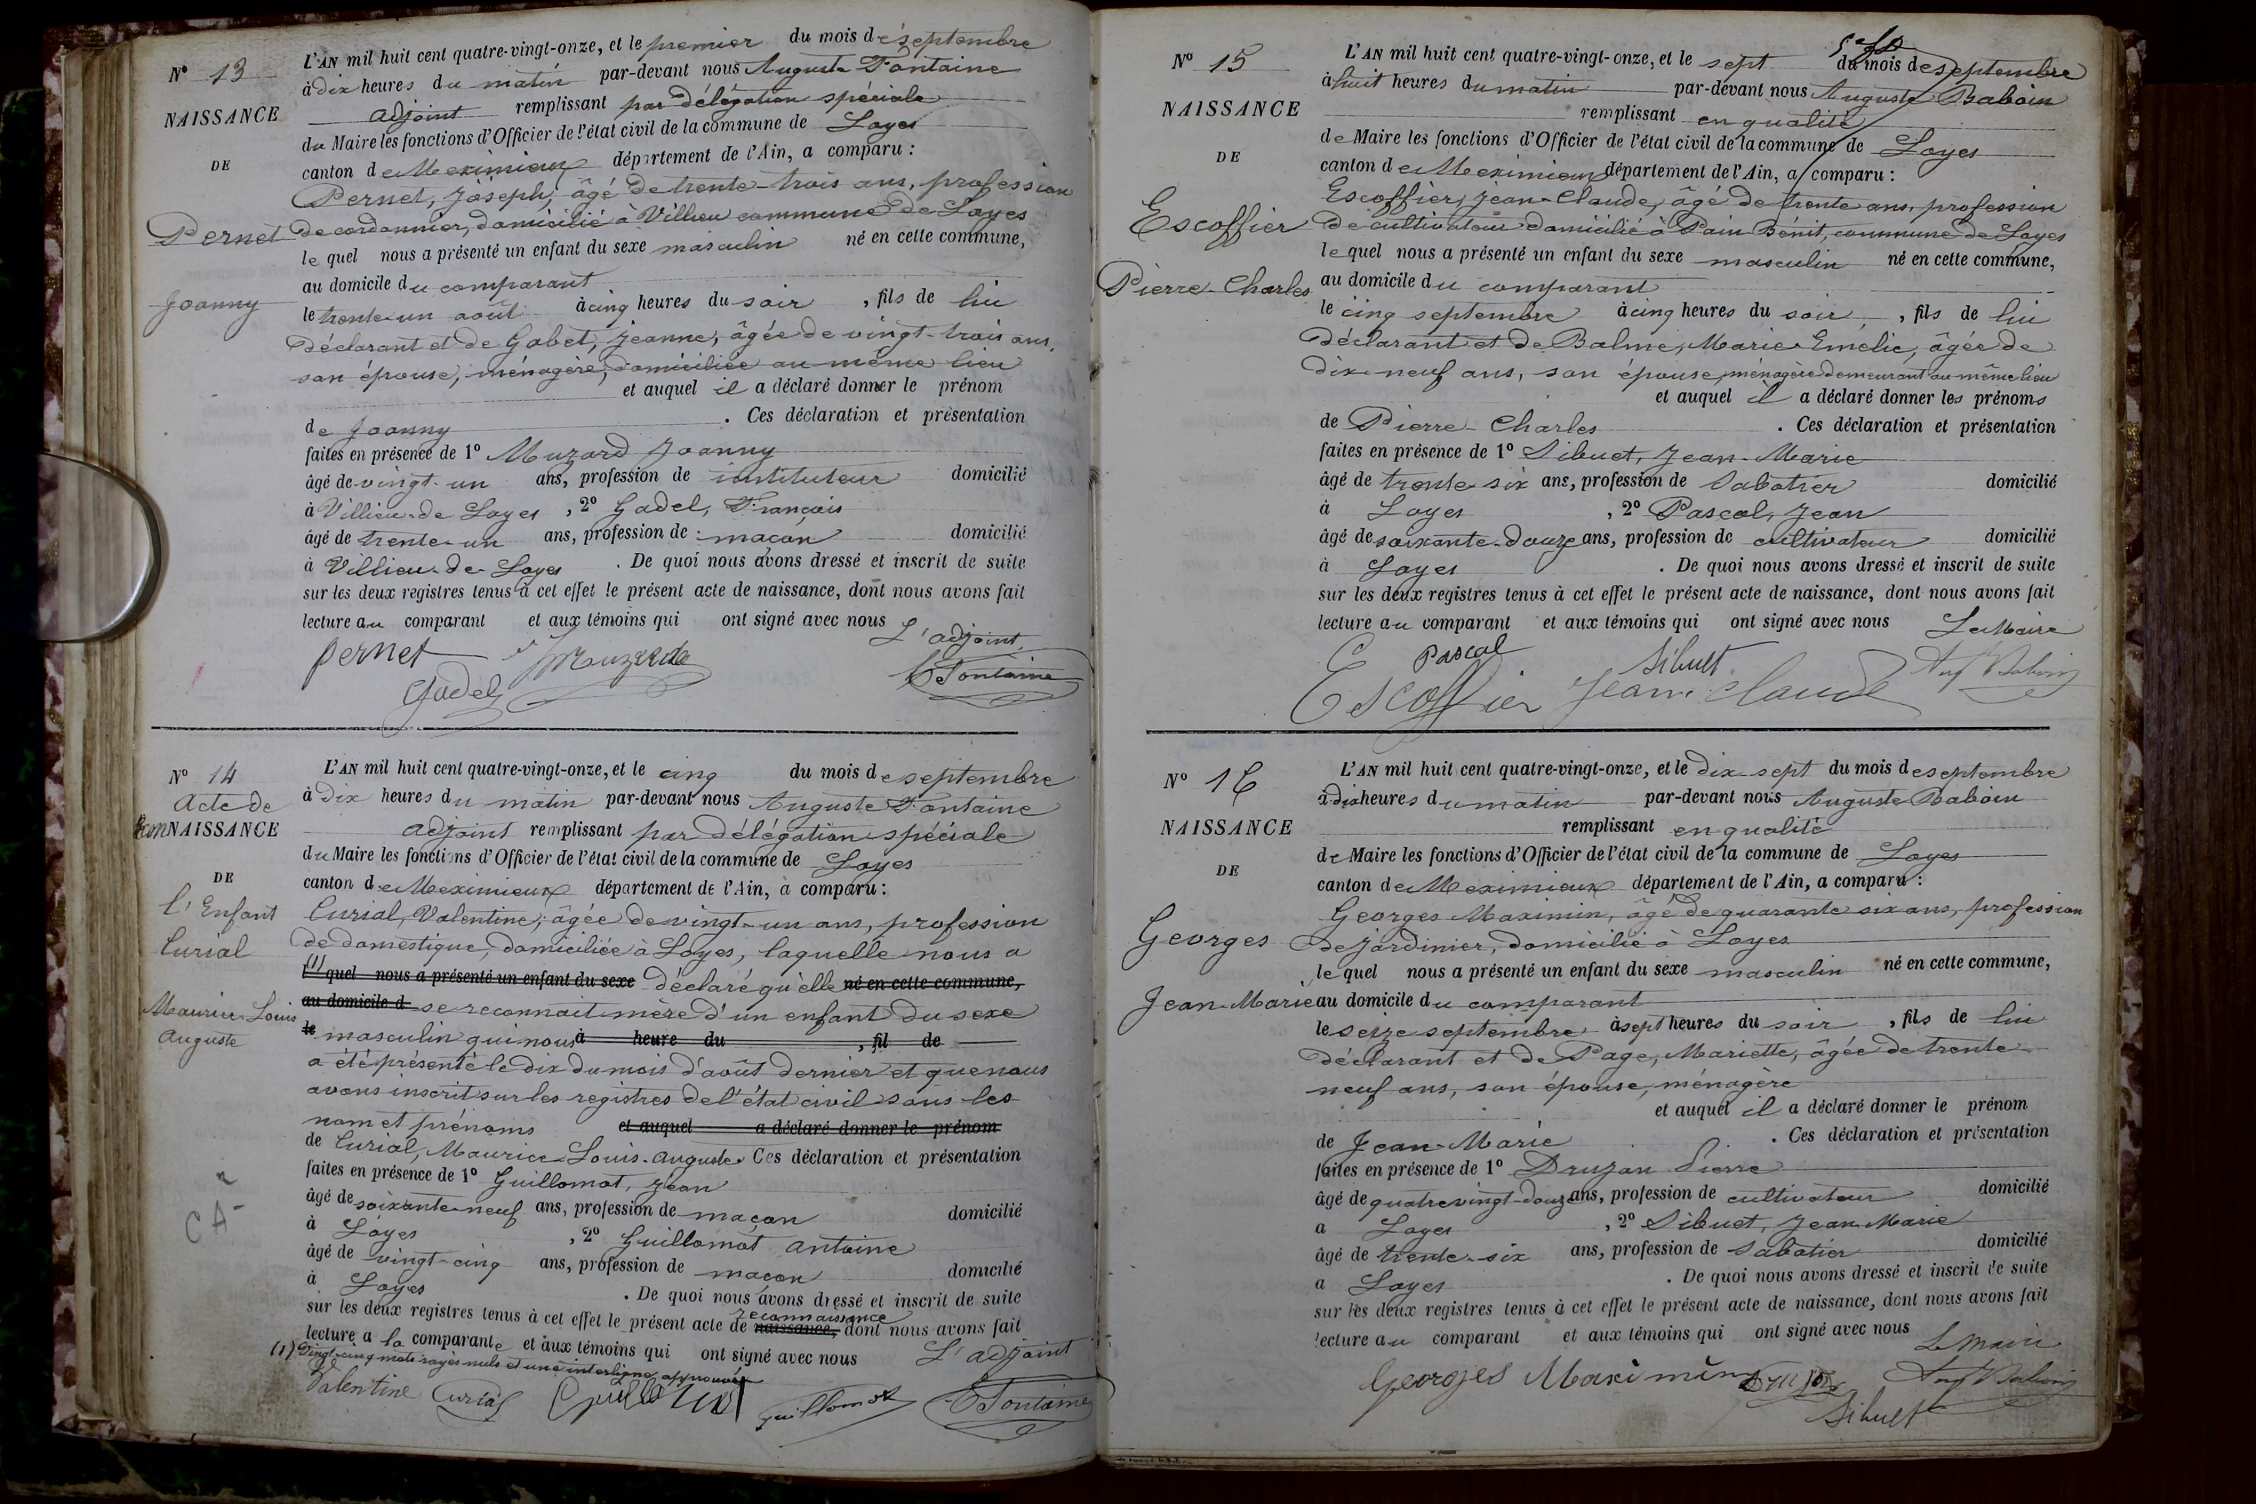 N° 13
NAISSANCE
DE
Pernet
Joanny
L'AN mil huit cent quatre-vingt-onze, et le premier du mois de septembre
à dix heures du matin par-devant nous Auguste Fontaine
adjoint remplissant par délégation spéciale
du Maire les fonctions d'Officier de l'état civil de la commune de Loyes
canton de Meximieux département de l'Ain, a comparu :
Pernet, Joseph, âgé de trente-trois ans, profession
de cordonnier, domicilié à Villieu commune de Loyes
le quel nous a présenté un enfant du sexe masculin né en cette commune,
au domicile du comparant
le trente-un août à cinq heures du soir, fils de lui
déclarant et de Gobet, Jeanne, âgée de vingt-trois ans,
son épouse, ménagère, domiciliée au même lieu
et auquel il a déclaré donner le prénom
de Joanny . Ces déclaration et présentation
faites en présence de 1° Muzard Joanny
âgé de vingt-un ans, profession de instituteur domicilié
à Villieu-de-Loyes, 2° Gadel, François
âgé de trente-un ans, profession de maçon domicilié
à Villieu-de-Loyes . De quoi nous avons dressé et inscrit de suite
sur les deux registres tenus à cet effet le présent acte de naissance, dont nous avons fait
lecture au comparant et aux témoins qui ont signé avec nous L'adjoint
Pernet Muzard
Gadel Fontaine
N° 14
Acte de
Reconnaissance
DE
l'Enfant
Curial
Maurice-Louis
Auguste
L'AN mil huit cent quatre-vingt-onze, et le cinq du mois de septembre
à dix heures du matin par-devant nous Auguste Fontaine
adjoint remplissant par délégation spéciale
du Maire les fonctions d'Officier de l'état civil de la commune de Loyes
canton de Meximieux département de l'Ain, à comparu :
Curial, Valentine, âgée de vingt-un ans, profession
de domestique, domiciliée à Loyes, laquelle nous a
(1) quel nous a présenté un enfant du sexe déclaré qu'elle né en cette commune,
au domicile d se reconnait mère d'un enfant du sexe
le masculin qui nous à heure du , fil de
a été présenté le dix du mois d'août dernier et que nous
avons inscrit sur les registres de l'état civil sous les
nom et prénoms et auquel a déclaré donner le prénom
de Curial, Maurice-Louis-Auguste. Ces déclaration et présentation
faites en présence de 1° Guillomot, Jean
âgé de soixante-neuf ans, profession de maçon domicilié
à Loyes , 2° Guillomot Antoine
âgé de vingt-cinq ans, profession de maçon domicilié
à Loyes . De quoi nous avons dressé et inscrit de suite
reconnaissance
sur les deux registres tenus à cet effet le présent acte de naissance, dont nous avons fait
lecture a la comparante et aux témoins qui ont signé avec nous L'adjoint
(1) Vingt-cinq mots rayés nuls et une interligne approuvée
Valentine Curial Guillomot Guillomot Fontaine
N° 15
NAISSANCE
DE
Escoffier
Pierre-Charles
L'AN mil huit cent quatre-vingt-onze, et le sept du mois de septembre
à huit heures du matin par-devant nous Auguste Baboin
remplissant en qualité
de Maire les fonctions d'Officier de l'état civil de la commune de Loyes
canton de Meximieux département de l'Ain, a comparu :
Escoffier, Jean-Claude, âgé de trente ans, profession
de cultivateur domicilié à Pain Bénit, commune de Loyes
le quel nous a présenté un enfant du sexe masculin né en cette commune,
au domicile du comparant
le cinq septembre à cinq heures du soir, fils de lui
déclarant et de Balme, Marie Emélie, âgée de
dix-neuf ans, son épouse, ménagère demeurant au même lieu
et auquel il a déclaré donner les prénoms
de Pierre-Charles . Ces déclaration et présentation
faites en présence de 1° Sibuet, Jean-Marie
âgé de trente-six ans, profession de Sabotier domicilié
à Loyes , 2° Pascal, Jean
âgé de soixante-douze ans, profession de cultivateur domicilié
à Loyes . De quoi nous avons dressé et inscrit de suite
sur les deux registres tenus à cet effet le présent acte de naissance, dont nous avons fait
lecture au comparant et aux témoins qui ont signé avec nous Le Maire
Pascal Sibuet Aug Baboin
Escoffier Jean Claude
N° 16
NAISSANCE
DE
Georges
Jean-Marie
L'AN mil huit cent quatre-vingt-onze, et le dix-sept du mois de septembre
à dix heures du matin par-devant nous Auguste Baboin
remplissant en qualité
de Maire les fonctions d'Officier de l'état civil de la commune de Loyes
canton de Meximieux département de l'Ain, a comparu :
Georges Maximin, âgé de quarante six ans, profession
de jardinier, domicilié à Loyes
le quel nous a présenté un enfant du sexe masculin né en cette commune,
au domicile du comparant
le seize septembre, à sept heures du soir, fils de lui
déclarant et de Page, Mariette, âgée de trente-
neuf ans, son épouse, ménagère
et auquel il a déclaré donner le prénom
de Jean-Marie . Ces déclaration et présentation
faites en présence de 1° Druzon Pierre
âgé de quatre vingt-douze ans, profession de cultivateur domicilié
a Loyes , 2° Sibuet, Jean-Marie
âgé de trente-six ans, profession de Sabotier domicilié
a Loyes . De quoi nous avons dressé et inscrit de suite
sur les deux registres tenus à cet effet le présent acte de naissance, dont nous avons fait
lecture au comparant et aux témoins qui ont signé avec nous Le Maire
Georges Maximin Aug Baboin
Sibuet